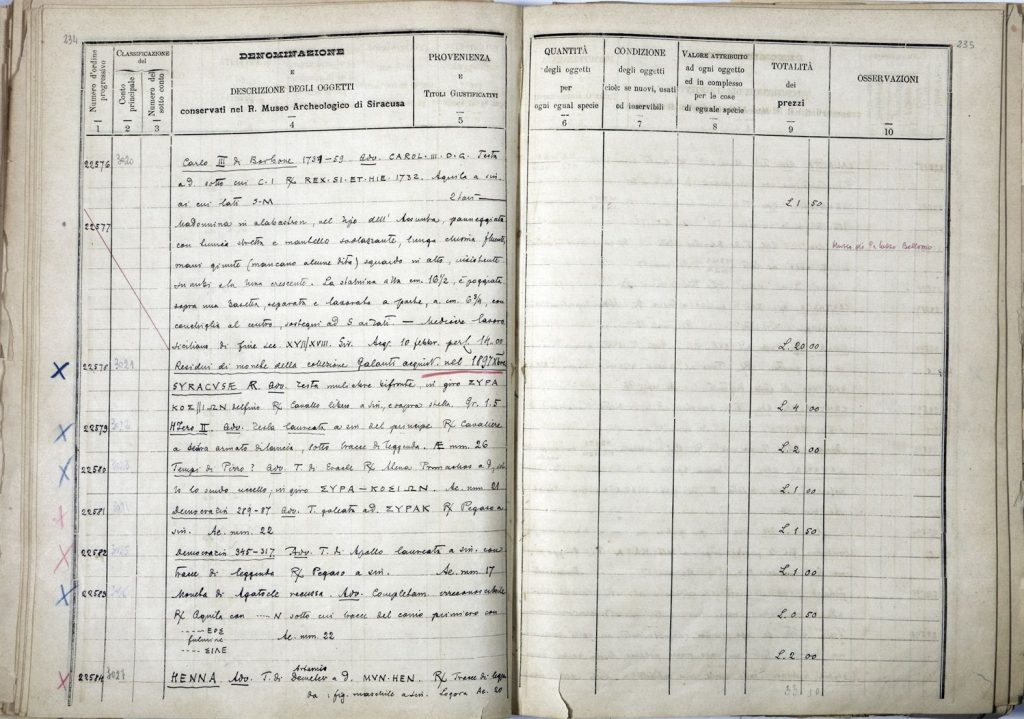 234
235
Numero d'ordine progressivo
CLASSIFICAZIONE del
Conto principale
Numero del sotto conto
DENOMINAZIONE
E
DESCRIZIONE DEGLI OGGETTI
conservati nel R. Museo Archeologico di Siracusa
PROVENIENZA
E
TITOLI GIUSTIFICATIVI
QUANTITÀ
degli oggetti
per
ogni egual specie
CONDIZIONE
degli oggetti
cioè: se nuovi, usati
od inservibili
VALORE ATTRIBUITO
ad ogni oggetto
ed in complesso
per le cose
di eguale specie
TOTALITÀ
dei
prezzi
OSSERVAZIONI
1 2 3 4 5 6 7 8 9 10
22576 3020 Carlo III di Borbone 1731-59 Adv. CAROL·III·D·G· Testa
a d. sotto cui C·I R/ REX·SI·ET·HIE·1732. Aquila a sin.
ai cui lati S-M 2 tarì
L. 1 50
22577 Madonnina in alabastron, nel tipo dell' Assunta, panneggiata
con tunica stretta e mantello svolazzante, lunga chioma fluente,
mani giunte (mancano alcune dita) sguardo in alto,
su nubi e la luna crescente. La statuina alta cm. 16 1/2, è poggiata
sopra una basetta, separata e lavorata a parte, a. cm. 6 3/4, con
conchiglia al centro, sostegni ad S ai lati. — Mediocre lavoro
siciliano di fine sec. XVII/XVIII. Sir. Acq. 10 febbr. per L. 14.00
L. 20 00
22578 3021 Residui di monete della collezione Galanti acquist. nel 1897
SYRACVSÆ Æ. Adv. Testa muliebre bifronte, in giro ΣΥΡΑ
ΚΟΣ||ΙΩΝ delfino. R/ Cavallo libero a sin. e sopra stella. Gr. 1.5
L. 4 00
22579 HIero II. Adv. Testa laureata a sin. del principe R/ Cavaliere
a destra armato di lancia, sotto tracce di leggenda. Æ mm. 26
L. 2 00
22580 Tempi di Pirro? Adv. T. di Eracle R/ Atena Promachos a d.,
in giro ΣΥΡΑ-ΚΟΣΙΩΝ. Ae. mm. 21
L. 1 00
22581 Democrazia 289-87 Adv. T. galeata a d. ΣΥΡΑΚ R/ Pegaso a
sin. Ae. mm. 22
L. 1 50
22582 Democrazia 345-317. Adv. T. di Apollo laureata a sin. con
tracce di leggenda R/ Pegaso a sin. Ae. mm. 17
L. 1 00
22583 Moneta di Agatocle Adv. Completam. irreconoscibile
R/ Aquila con ---- N sotto cui tracce del conio primiero con
---- ΕΟΣ
fulmine
---- ΣΙΛΕ
Ae. mm. 22
L. 0 50
L. 2 00
22584 3027 HENNA Adv. T. di Demeter a d. MVN·HEN. R/ Tracce di leggen
Artemis
da : fig. maschile a sin. Logora Ae. 20
33 10